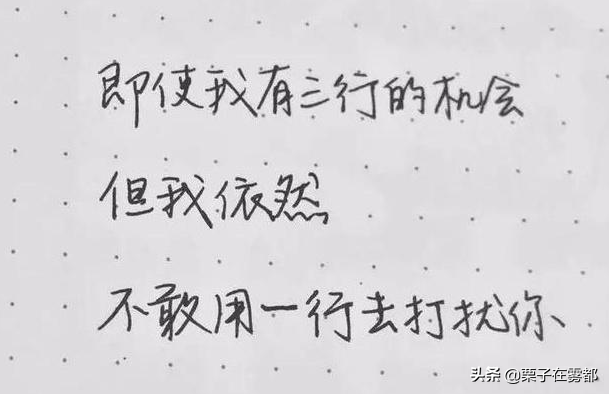 即使我有三行的机会
但我依然
不敢用一行去打扰你
头条 @栗子在雾都